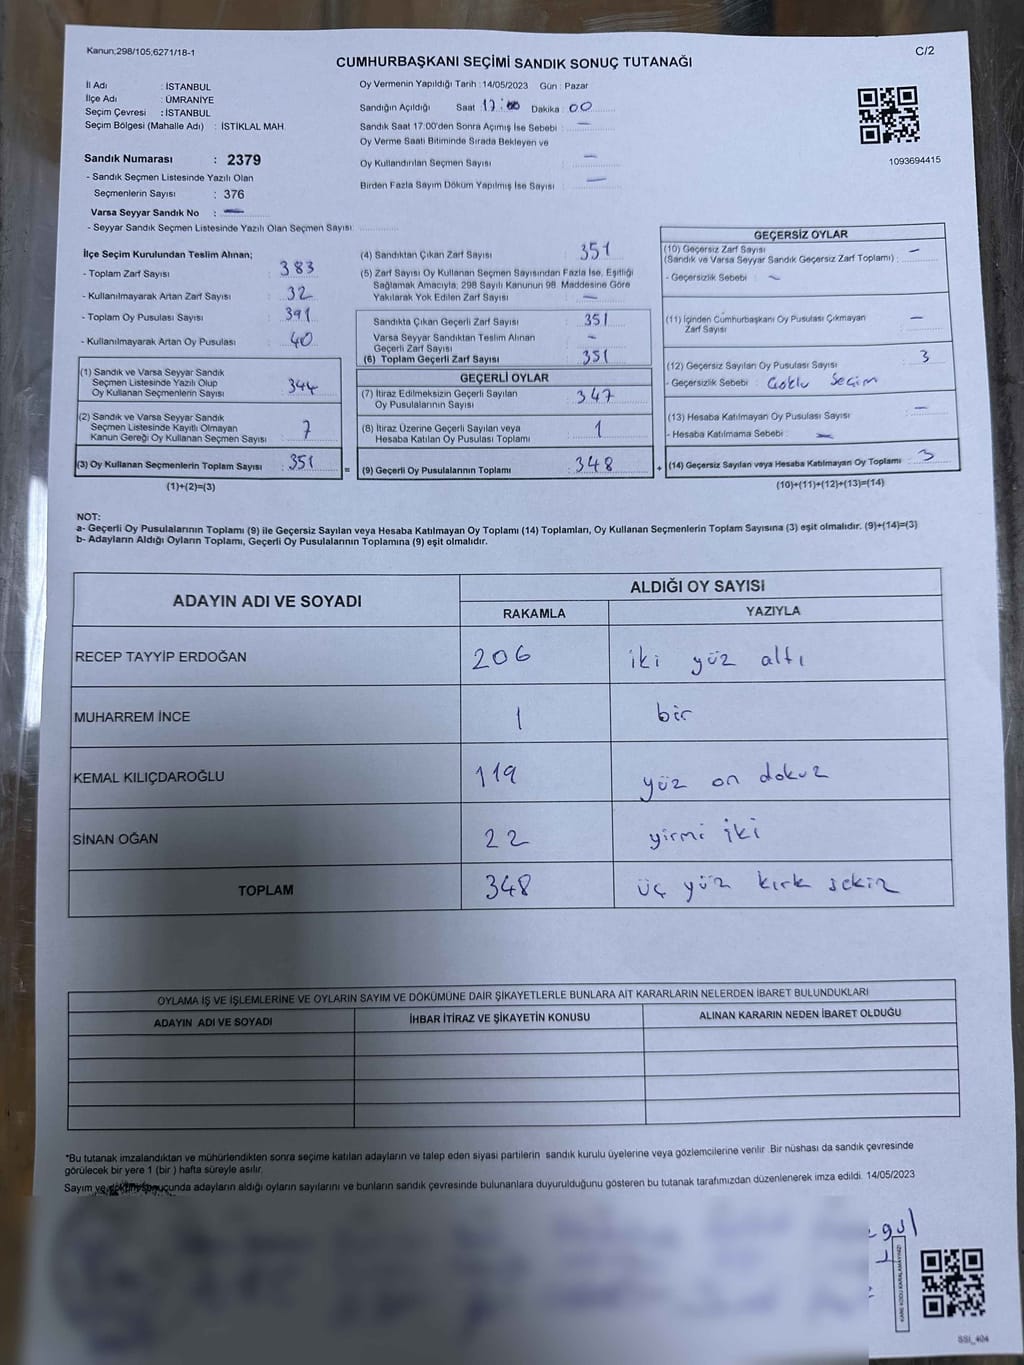 Kanun;298/105;6271/18-1
C/2
CUMHURBAŞKANI SEÇİMİ SANDIK SONUÇ TUTANAĞI
İl Adı : İSTANBUL
İlçe Adı : ÜMRANİYE
Seçim Çevresi : İSTANBUL
Seçim Bölgesi (Mahalle Adı) : İSTİKLAL MAH.
Sandık Numarası : 2379
- Sandık Seçmen Listesinde Yazılı Olan
Seçmenlerin Sayısı : 376
Varsa Seyyar Sandık No : —
- Seyyar Sandık Seçmen Listesinde Yazılı Olan Seçmen Sayısı:
Oy Vermenin Yapıldığı Tarih : 14/05/2023 Gün : Pazar
Sandığın Açıldığı Saat 17:00 Dakika : 00
Sandık Saat 17:00'den Sonra Açımış İse Sebebi : —
Oy Verme Saati Bitiminde Sırada Bekleyen ve
Oy Kullandırılan Seçmen Sayısı : —
Birden Fazla Sayım Döküm Yapılmış İse Sayısı : —
1093694415
İlçe Seçim Kurulundan Teslim Alınan;
- Toplam Zarf Sayısı : 383
- Kullanılmayarak Artan Zarf Sayısı : 32
- Toplam Oy Pusulası Sayısı : 391
- Kullanılmayarak Artan Oy Pusulası : 40
(1) Sandık ve Varsa Seyyar Sandık
Seçmen Listesinde Yazılı Olup
Oy Kullanan Seçmenlerin Sayısı : 344
(2) Sandık ve Varsa Seyyar Sandık
Seçmen Listesinde Kayıtlı Olmayan
Kanun Gereği Oy Kullanan Seçmen Sayısı : 7
(3) Oy Kullanan Seçmenlerin Toplam Sayısı : 351
(1)+(2)=(3)
(4) Sandıktan Çıkan Zarf Sayısı : 351
(5) Zarf Sayısı Oy Kullanan Seçmen Sayısından Fazla İse, Eşitliği
Sağlamak Amacıyla; 298 Sayılı Kanunun 98. Maddesine Göre
Yakılarak Yok Edilen Zarf Sayısı : —
Sandıkta Çıkan Geçerli Zarf Sayısı : 351
Varsa Seyyar Sandıktan Teslim Alınan
Geçerli Zarf Sayısı : —
(6) Toplam Geçerli Zarf Sayısı : 351
GEÇERLİ OYLAR
(7) İtiraz Edilmeksizin Geçerli Sayılan
Oy Pusulalarının Sayısı : 347
(8) İtiraz Üzerine Geçerli Sayılan veya
Hesaba Katılan Oy Pusulası Toplamı : 1
= (9) Geçerli Oy Pusulalarının Toplamı : 348
GEÇERSİZ OYLAR
(10) Geçersiz Zarf Sayısı —
(Sandık ve Varsa Seyyar Sandık Geçersiz Zarf Toplamı) :
- Geçersizlik Sebebi : —
(11) İçinden Cumhurbaşkanı Oy Pusulası Çıkmayan —
Zarf Sayısı
(12) Geçersiz Sayılan Oy Pusulası Sayısı : 3
- Geçersizlik Sebebi : Çoklu Seçim
(13) Hesaba Katılmayan Oy Pusulası Sayısı : —
- Hesaba Katılmama Sebebi : —
+ (14) Geçersiz Sayılan veya Hesaba Katılmayan Oy Toplamı : 3
(10)+(11)+(12)+(13)=(14)
NOT:
a- Geçerli Oy Pusulalarının Toplamı (9) ile Geçersiz Sayılan veya Hesaba Katılmayan Oy Toplamı (14) Toplamları, Oy Kullanan Seçmenlerin Toplam Sayısına (3) eşit olmalıdır. (9)+(14)=(3)
b- Adayların Aldığı Oyların Toplamı, Geçerli Oy Pusulalarının Toplamına (9) eşit olmalıdır.
ADAYIN ADI VE SOYADI ALDIĞI OY SAYISI
RAKAMLA YAZIYLA
RECEP TAYYİP ERDOĞAN 206 iki yüz altı
MUHARREM İNCE 1 bir
KEMAL KILIÇDAROĞLU 119 yüz on dokuz
SİNAN OĞAN 22 yirmi iki
TOPLAM 348 üç yüz kırk sekiz
OYLAMA İŞ VE İŞLEMLERİNE VE OYLARIN SAYIM VE DÖKÜMÜNE DAİR ŞİKAYETLERLE BUNLARA AİT KARARLARIN NELERDEN İBARET BULUNDUKLARI
ADAYIN ADI VE SOYADI İHBAR İTİRAZ VE ŞİKAYETİN KONUSU ALINAN KARARIN NEDEN İBARET OLDUĞU
*Bu tutanak imzalandıktan ve mühürlendikten sonra seçime katılan adayların ve talep eden siyasi partilerin sandık kurulu üyelerine veya gözlemcilerine verilir. Bir nüshası da sandık çevresinde
görülecek bir yere 1 (bir ) hafta süreyle asılır.
Sayım ve döküm sonucunda adayların aldığı oyların sayılarını ve bunların sandık çevresinde bulunanlara duyurulduğunu gösteren bu tutanak tarafımızdan düzenlenerek imza edildi. 14/05/2023
KARE KODU KARALAMAYINIZ!
SSI_404